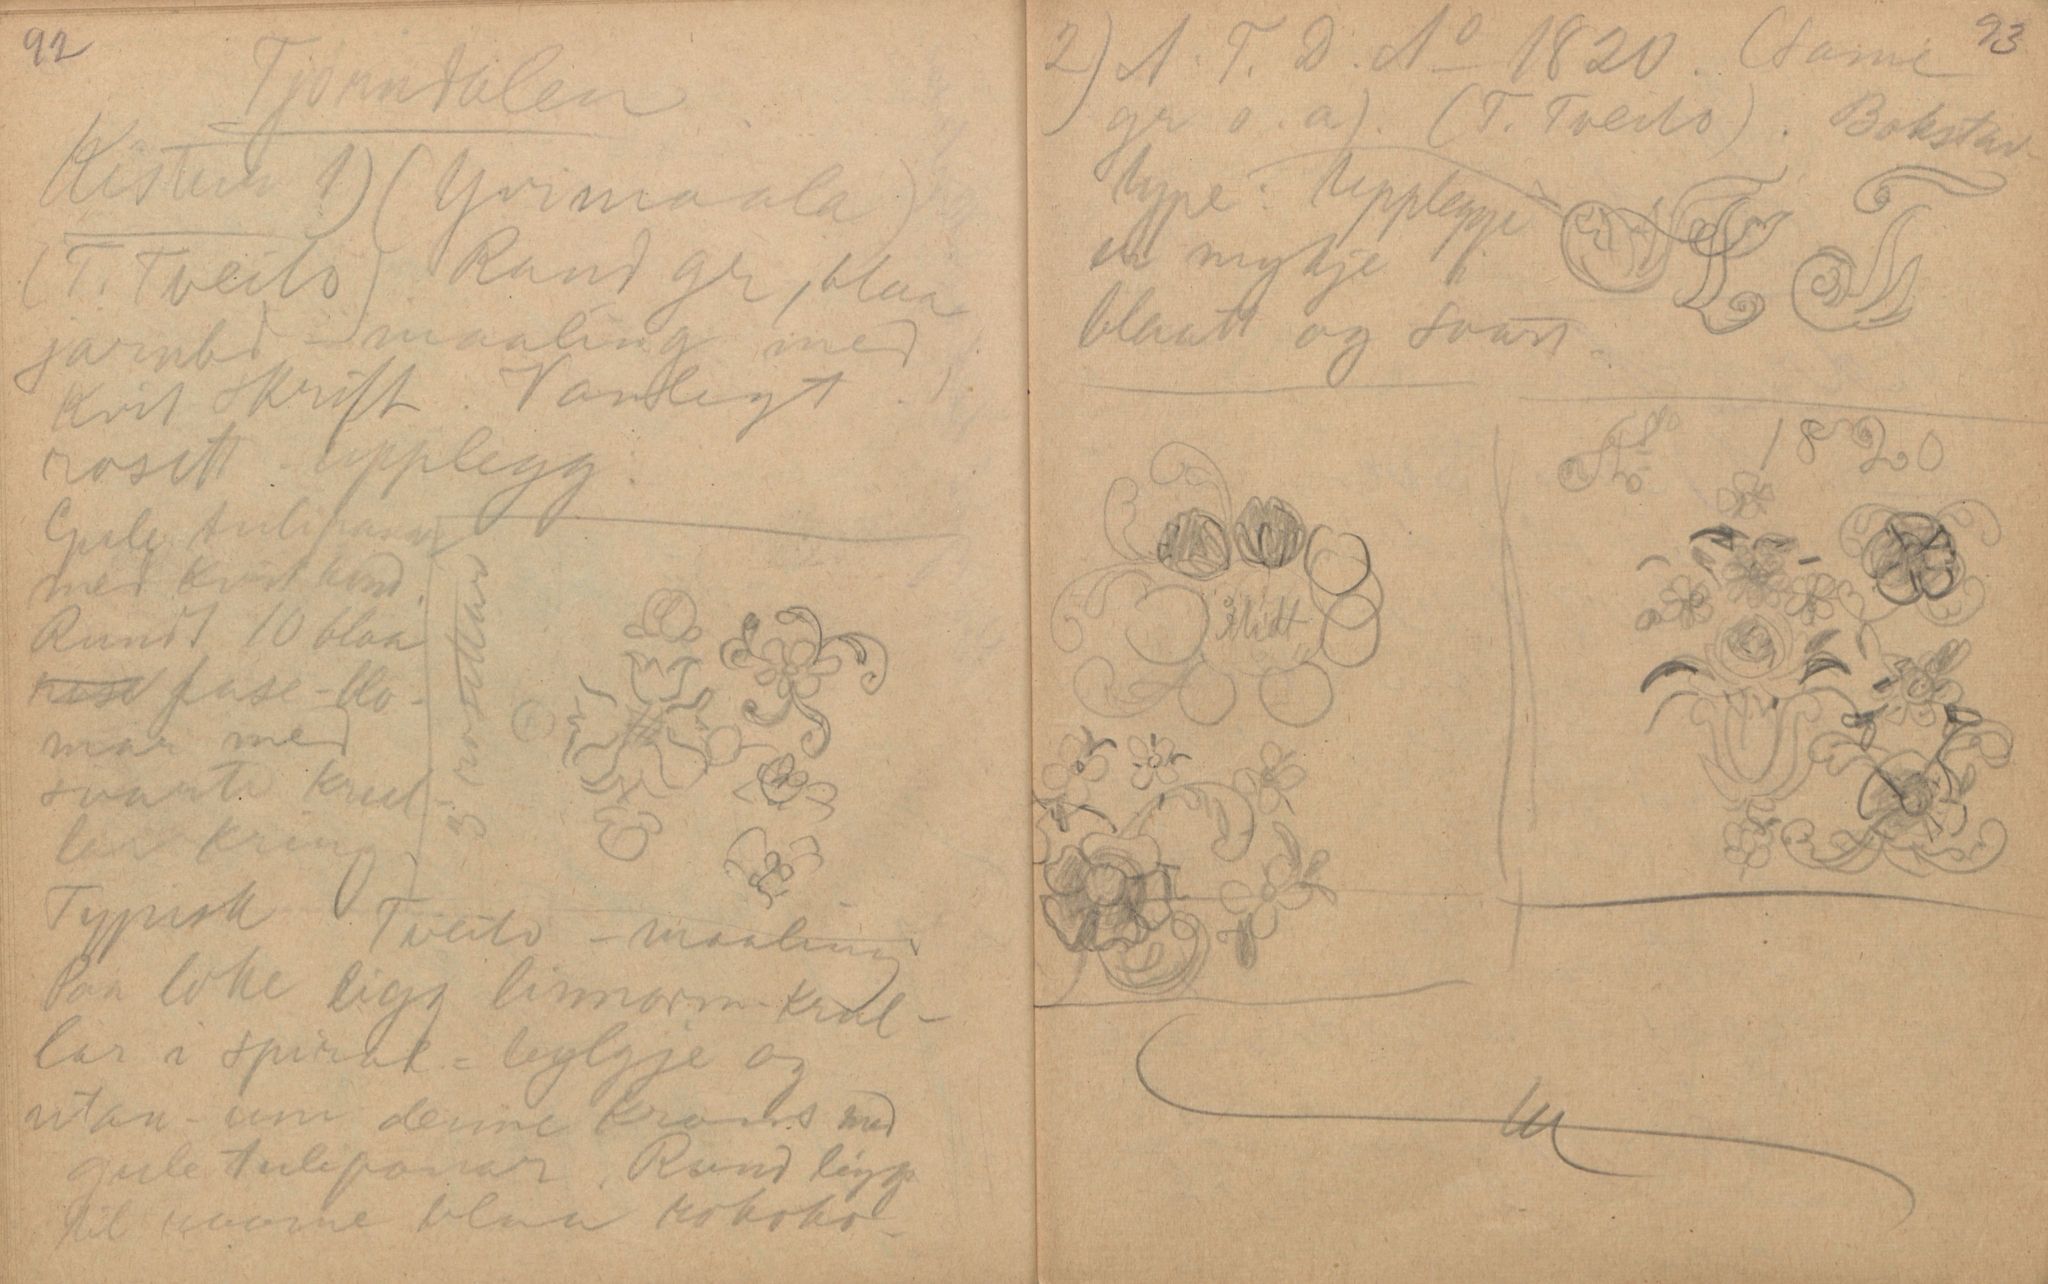 92
Tjørndalen
Kistur 1) (Yvimaala)
(T. Tveito) Raud gr, blaa
jarnbd - maaling med
kvit skrift. Vanlegt
rosett - upplegg.
Gule tulipanar
med kvit kand.
Rundt 10 blaa
rose fase-blo-
mar med
svarte krul-
lar kring
3 rosettar
Typisk Tveito - maaling
Paa loke ligg linnorm-krul-
lar i spiral - bylgje og
utan - um denne krans med
gule tulipanar. Raud ligg
til raame blaa rokoko-
93
2) A. T. D. No 1820. (Same
gr o. a). (T. Tveito). Bokstav-
type: Upplegge
er mykje
blaatt og svart.
Midt
No 1820